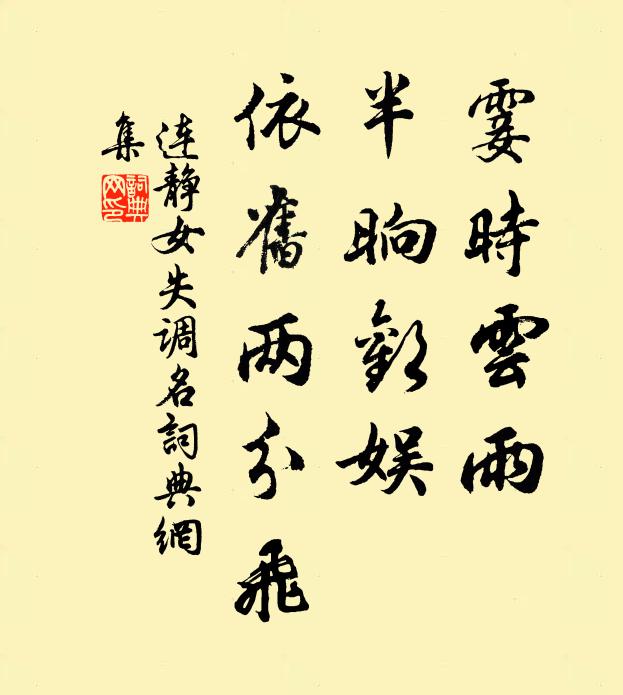 霎時雲雨
半晌歡娛
依舊兩分飛
连静女失调名詞典網
集
詞典
网印